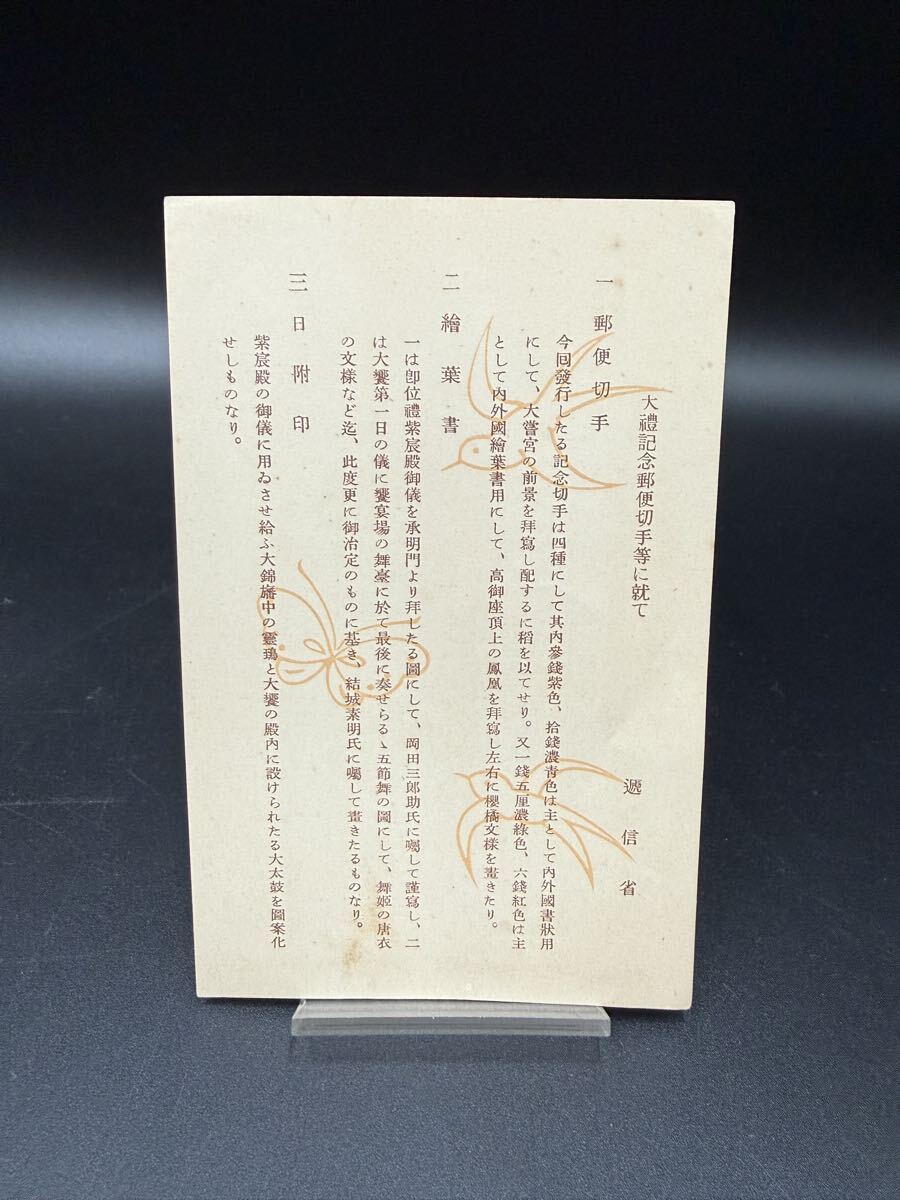 大禮記念郵便切手等に就て
遞信省
一 郵便切手
今回發行したる記念切手は四種にして其内參錢紫色、拾錢濃靑色は主として内外國書狀用
にして、大嘗宮の前景を拜寫し配するに稻を以てせり。又一錢五厘濃綠色、六錢紅色は主
として内外國繪葉書用にして、高御座頂上の鳳凰を拜寫し左右に櫻橘文樣を畫きたり。
二 繪葉書
一は卽位禮紫宸殿御儀を承明門より拜したる圖にして、岡田三郎助氏に囑して謹寫し、二
は大饗第一日の儀に饗宴場の舞臺に於て最後に奏せらるゝ五節舞の圖にして、舞姬の唐衣
の文樣など迄、此度更に御治定のものに基き、結城素明氏に囑して畫きたるものなり。
三 日附印
紫宸殿の御儀に用ゐさせ給ふ大錦旛中の靈鵄と大饗の殿内に設けられたる大太鼓を圖案化
せしものなり。